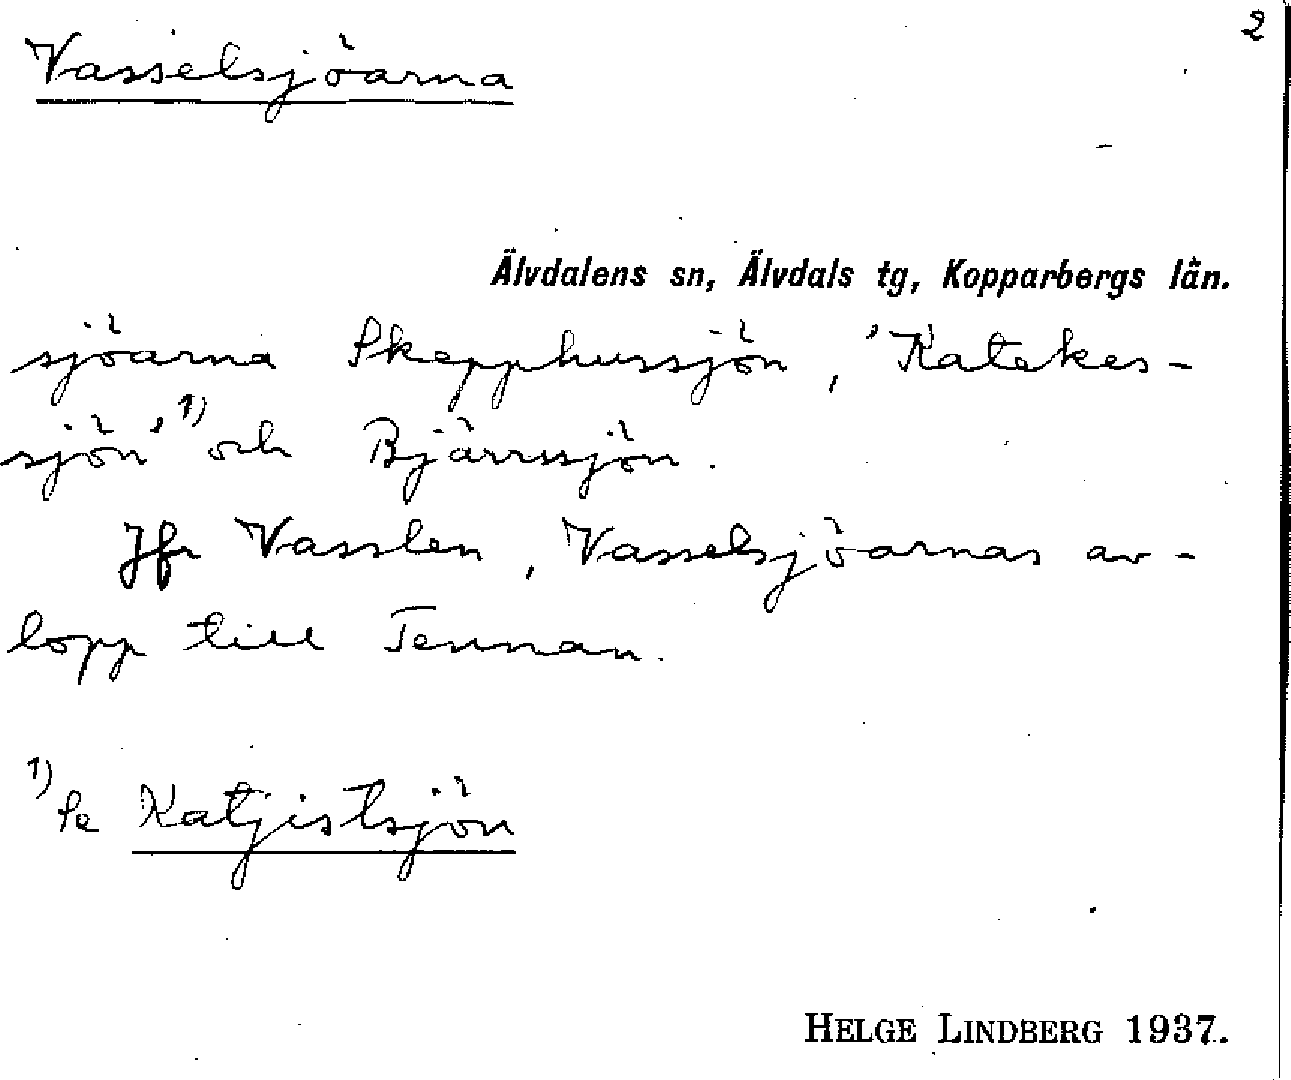 2
Vasselsjöarna
Älvdalens sn, Älvdals tg, Kopparbergs län.
sjöarna Skepphussjön, 'Katekes-
sjön' 1) och Bjärrssjön.
Jfr Vasslen, Vasselsjöarnas av-
lopp till Tennan.
1) Se Katjistsjön
HELGE LINDBERG 1937.